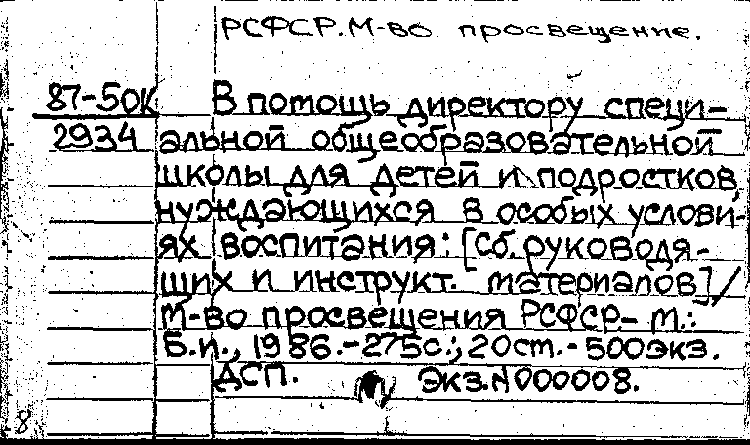 РСФСР. М-во просвещение.
87-50К В помощь директору специ-
2934 альной общеобразовательной
школы для детей и подростков,
нуждающихся в особых услови-
ях воспитания: [Сб. руководя-
щих и инструкт. материалов] /
М-во просвещения РСФСР.- М.:
Б.и., 1986.-275с.; 20ст.- 500экз.
ДСП. Экз.N000008.
8